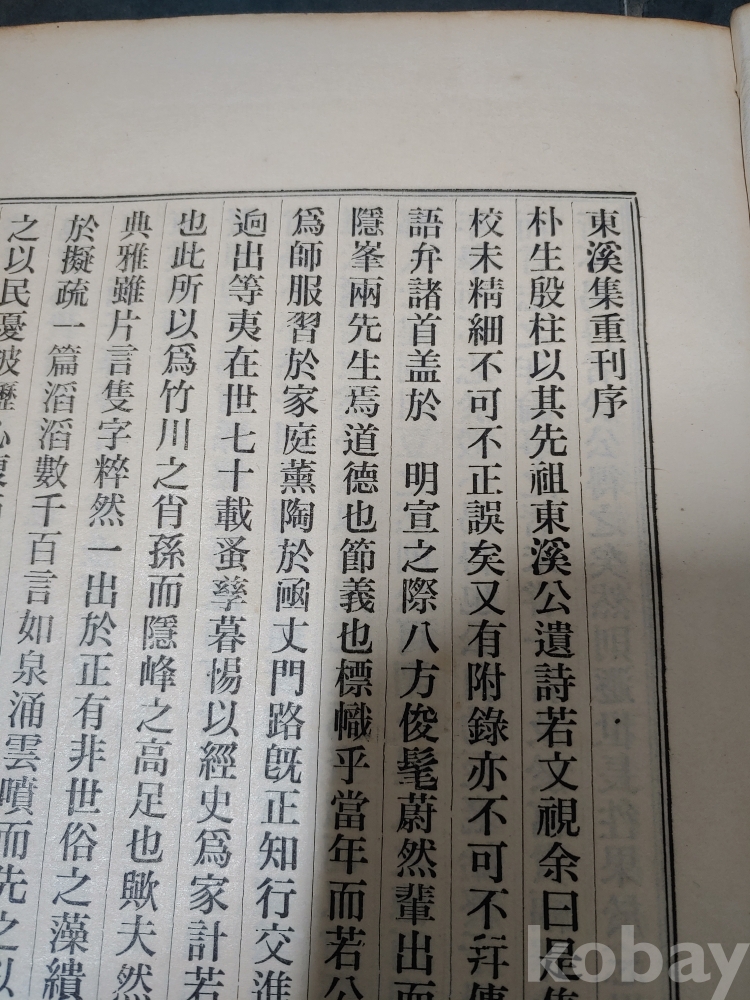 東溪集重刊序
朴生殷柱以其先祖東溪公遺詩若文視余曰是
校未精細不可不正誤矣又有附錄亦不可不弁
語弁諸首盖於 明宣之際八方俊髦蔚然輩出而
隱峯兩先生焉道德也節義也標幟乎當年而若公
爲師服習於家庭薰陶於凾丈門路旣正知行交進
逈出等夷在世七十載蚤孳暮惕以經史爲家計若
也此所以爲竹川之肖孫而隱峰之高足也歟夫然
典雅雖片言隻字粹然一出於正有非世俗之藻繢
於擬疏一篇滔滔數千百言如泉涌雲噴而先之以
之以民憂
kobay